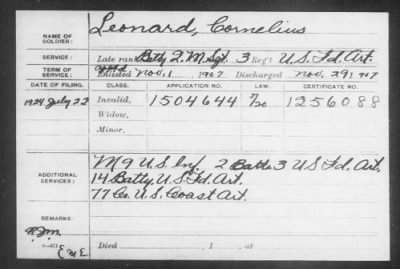 NAME OF SOLDIER: Leonard, Cornelius
SERVICE: Late rank Batty 2. M. Sgt. 3 Reg't U.S. Fd. Art.
TERM OF SERVICE: Enlisted Nov. 1 1907 Discharged Nov. 29, 1917
DATE OF FILING. CLASS. APPLICATION NO. LAW. CERTIFICATE NO.
1924 July 22 Invalid, 1504644 1256088
Widow,
Minor,
ADDITIONAL SERVICES: M 9 U.S. Inf. 2 Batt. 3 U S Fd. Art,
14 Batty. U.S. Fd. Art.
77 Co. U.S. Coast Art.
REMARKS:
Died , 1 , at